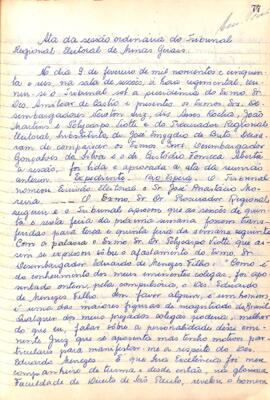 77
Ata da sessão ordinária do Tribunal
Regional Eleitoral de Minas Gerais.
No dia 9 de fevereiro de mil novecentos e cinquen-
ta e seis, na sala de sessões, à hora regimental, reu-
niu-se o Tribunal sob a presidência do Exmo. Sr.
Des. Amilcar de Castro e presentes os Exmos. Srs. De-
sembargadores Newton Luz, drs. Rocha, João
Martins e Polycarpo Viotti e do Procurador Regional
Eleitoral, substituto, dr. José
ram de comparecer os Exmos. Snrs. Desembargador
Gonçalves da Silva e o dr. Custódio Fonseca. Aberta
a sessão, foi lida e aprovada a ata da reunião
anterior. Expediente. O Tribunal
nomeou Escrivão Eleitoral o Sr. José Anastácio Mo-
reira. — O Exmo. Sr. Dr. Procurador Regional
requereu e o Tribunal aprovou que as sessões de quin-
ta e sexta feira da próxima semana fossem trans-
feridas para terça e quinta feira da semana seguinte.
Com a palavra o Exmo. Sr. Dr. Polycarpo Viotti que as-
sim se expressou sobre o afastamento do Exmo. Sr.
Desembargador Eduardo de Menezes Filho: - Como é
do conhecimento dos meus eminentes colegas, foi apo-
sentado ontem, pela compulsória, o Des. Eduardo
de Menezes Filho. Sem favor algum, é um homem
e uma das maiores figuras da magistratura do Brasil.
Qualquer dos meus prezados colegas poderia, melhor
do que eu, falar sobre a personalidade desse emi-
nente Juiz que se aposenta mas tenho motivos par-
ticulares para manifestar-me a respeito do Des.
Eduardo Menezes. É que Sua Excelência foi meu
companheiro de turma e desde então, na gloriosa
Faculdade de Direito de São Paulo, revelou o homem